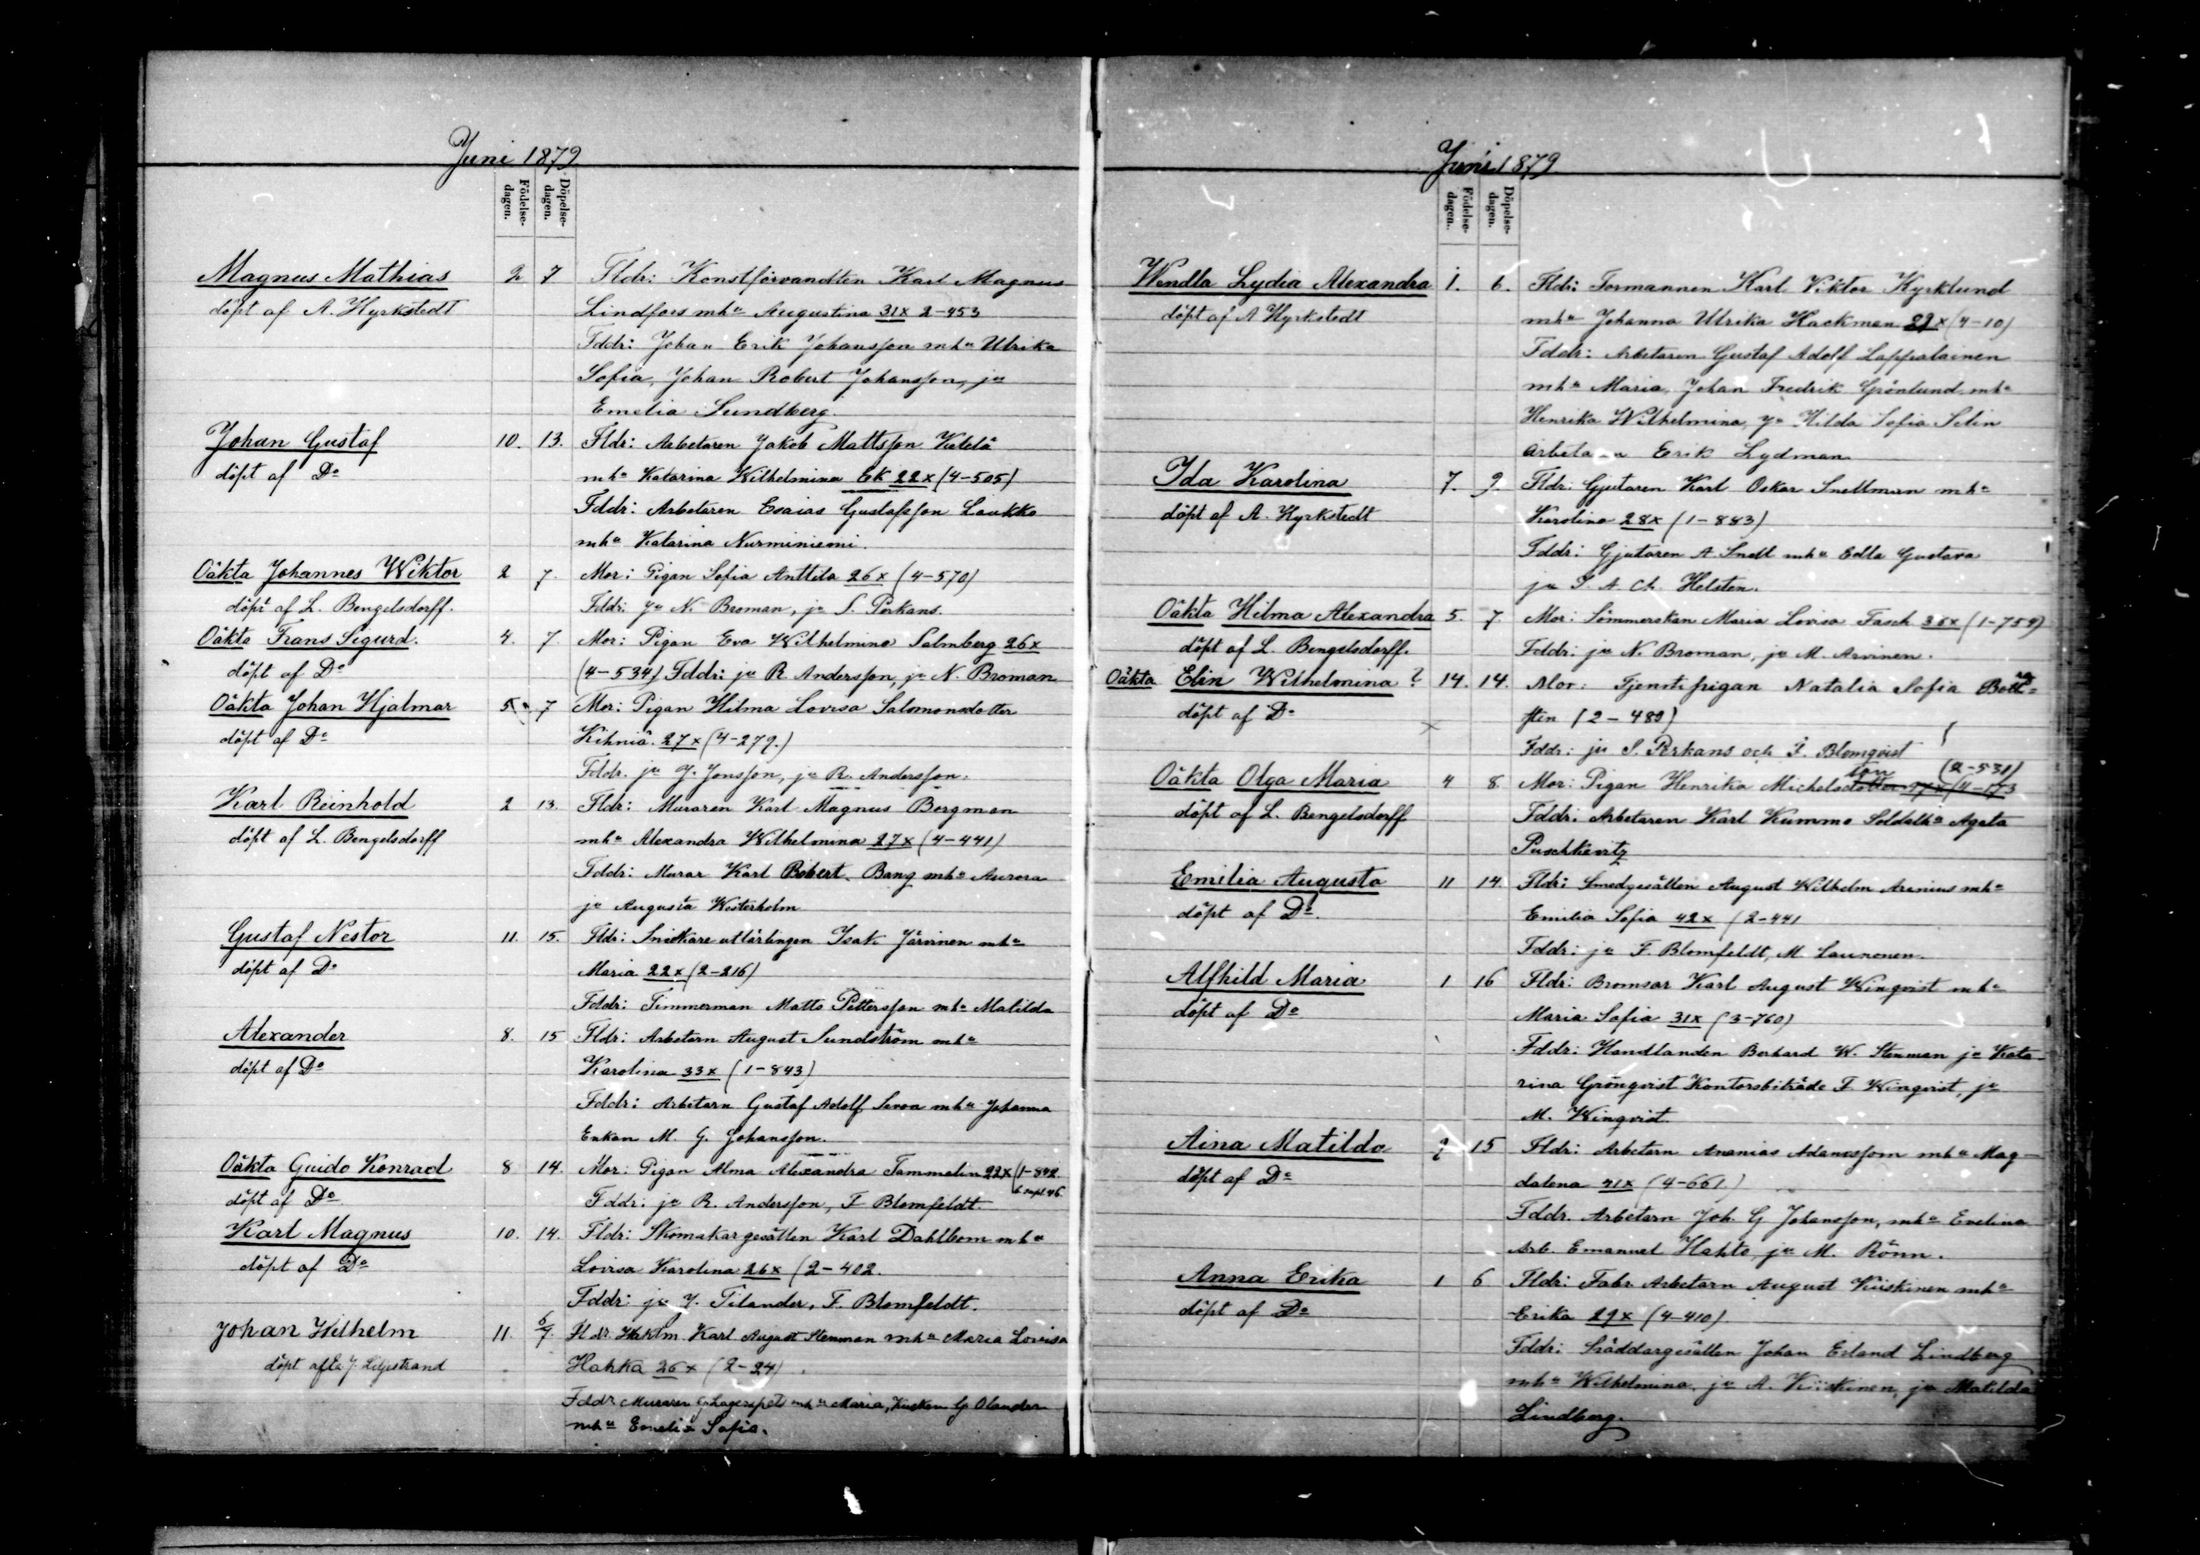 Juni 1879
Födelse-
dagen.
Döpelse-
dagen.
Magnus Mathias 2 7 Fldr: Konstförvandten Karl Magnus
döpt af A. Hyrkstedt Lindfors mha Augustina 31x 2-453
Fddr: Johan Erik Johansson mha Ulrika
Sofia, Johan Robert Johansson, ju
Emelia Sundberg.
Johan Gustaf 10. 13. Fldr: Arbetaren Jakob Mattsson
döpt af Do mha Katarina Wilhelmina Ek 22x (4-505)
Fddr: Arbetaren Esaias Gustafsson Laukko
mha Katarina Nurminiemi.
Oäkta Johannes Wiktor 2 7. Mor: Pigan Sofia Anttila 26x (4-570)
döpt af L. Bengelsdorff. Fddr: ju N. Broman, ju S. Perkans.
Oäkta Frans Sigurd. 4. 7. Mor: Pigan Eva Wilhelmina Salmberg 26x
döpt af Do (4-534) Fddr: ju R. Andersson, ju N. Broman
Oäkta Johan Hjalmar 5. 7 Mor: Pigan Hilma Lovisa Salomonsdotter
döpt af Do Kihniä. 27x (4-279.)
Fddr. ju J. Jonsson, ju R. Andersson.
Karl Reinhold 2 13. Fldr: Muraren Karl Magnus Bergman
döpt af L. Bengelsdorff mha Alexandra Wilhelmina 27x (4-441)
Fddr: Murar Karl Robert Bang mha Aurora
ju Augusta Westerholm
Gustaf Nestor 11. 15. Fldr: Snickare utlärlingen Isak Järvinen mha
döpt af Do Maria 22x (2-216)
Fddr: Timmerman Matts Pettersson mha Matilda
Alexander 8. 15 Fldr: Arbetarn August Sundström mha
döpt af Do Karolina 33x (1-843)
Fddr: Arbetarn Gustaf Adolf mha Johanna
Enkan M. G. Johansson.
Oäkta Guido Konrad 8 14. Mor: Pigan Alma Alexandra Tammelin 22x (1-842
6 sept 46
döpt af Do Fddr: ju R. Andersson, F Blomfeldt.
Karl Magnus 10. 14. Fldr: Skomakargesällen Karl Dahlbom mha
döpt af Do Lovisa Karolina 26x (2-402.
Fddr: ju J. Tilander, F. Blomfeldt.
Johan Wilhelm 11. 6/7. Fldr. Karl August Stenman mha Maria Lovisa
döpt af J. Liljestrand Hakka 26x (2-24).
Fddr Muraren G. mha Maria, Kusken G Olander
mha Emelia Sofia.
Juni 1879
Födelse-
dagen.
Döpelse-
dagen.
Wendla Lydia Alexandra 1. 6. Fldr: Formannen Karl Viktor Kyrklund
döpt af A Hyrkstedt mha Johanna Ulrika Hackman 29x (4-10)
Fddr: Arbetaren Gustaf Adolf Lappalainen
mha Maria, Johan Fredrik Grönlund mha
Henrika Wilhelmina, ju Hilda Sofia Selin
Erik Lydman
Ida Karolina 7. 9. Fldr: Gjutaren Karl Oskar Snellman mha
döpt af A. Hyrkstedt Karolina 28x (1-883)
Fddr: Gjutaren A Snell mha Edla Gustava
ju I. A. Ch. Helsten.
Oäkta Hilma Alexandra 5. 7. Mor: Sömmerskan Maria Lovisa Fasch 38x (1-759)
döpt af L. Bengelsdorff. Fddr: ju N. Broman, ju M. Arvinen.
Oäkta Elin Wilhelmina ? 14. 14. Mor: Tjenstepigan Natalia Sofia
döpt af Do (2-489)
Fddr: ju S. Perkans och I. Blomqvist
(2-531)
Oäkta Olga Maria 4 8. Mor: Pigan Henrika Michelsdotter (4-173
döpt af L. Bengelsdorff Fddr: Arbetaren Karl Kummo Soldatha Agata
Puschkevitz
Emilia Augusta 11 14. Fldr: Smedgesällen August Wilhelm Arenius mha
döpt af Do. Emilia Sofia 42x (2-441
Fddr: ju F. Blomfeldt, M. Launonen.
Alfhild Maria 1 16 Fldr: Bromsar Karl August Winqvist mha
döpt af Do Maria Sofia 31x (3-760)
Fddr: Handlanden Berhard W. Stenman ju Kata-
rina Grönqvist Kontorsbiträde F. Winqvist, ju
M. Winqvist.
Aina Matilda 2 15 Fldr: Arbetarn Ananias Adamsson mha Mag-
döpt af Do dalena 41x (4-661.)
Fddr. Arbetarn Joh. G Johansson, mha Evelina
Arb. Emanuel Hahto, ju M. Rönn.
Anna Erika 1 6 Fldr: Fabr. Arbetarn August Kiiskinen mha
döpt af Do Erika 29x (4-410)
Fddr: Skräddargesällen Johan Erland Lindberg
mha Wilhelmina, ju A. Kiiskinen, ju Matilda
Lindberg.